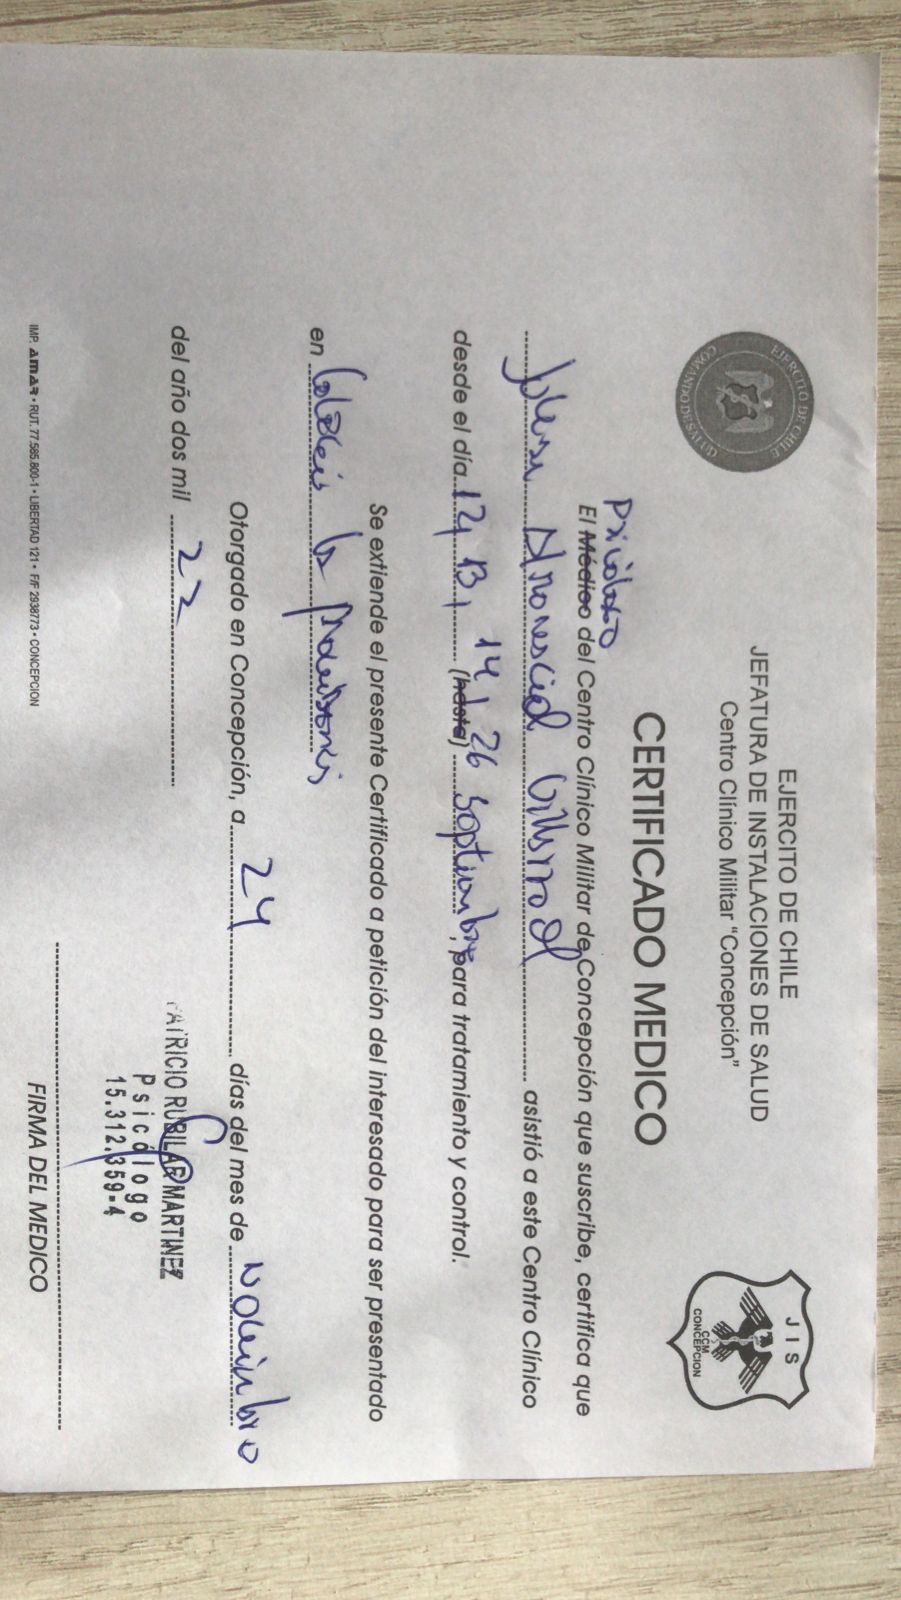 EJERCITO DE CHILE
COMANDO DE SALUD
EJERCITO DE CHILE
JEFATURA DE INSTALACIONES DE SALUD
Centro Clínico Militar "Concepción"
JIS
CCM
CONCEPCION
CERTIFICADO MEDICO
Psicólogo
El Médico del Centro Clínico Militar de Concepción que suscribe, certifica que
asistió a este Centro Clínico
desde el día 12, 13, 14, 26 (hasta) Septiembre, para tratamiento y control.
Se extiende el presente Certificado a petición del interesado para ser presentado
en
Otorgado en Concepción, a 24 días del mes de Noviembre
del año dos mil 22
PATRICIO RUBILAR MARTINEZ
Psicólogo
15.312.359-4
FIRMA DEL MEDICO
IMP. AMAR • RUT. 77.585.800-1 • LIBERTAD 121 • F/F 2938773 • CONCEPCION